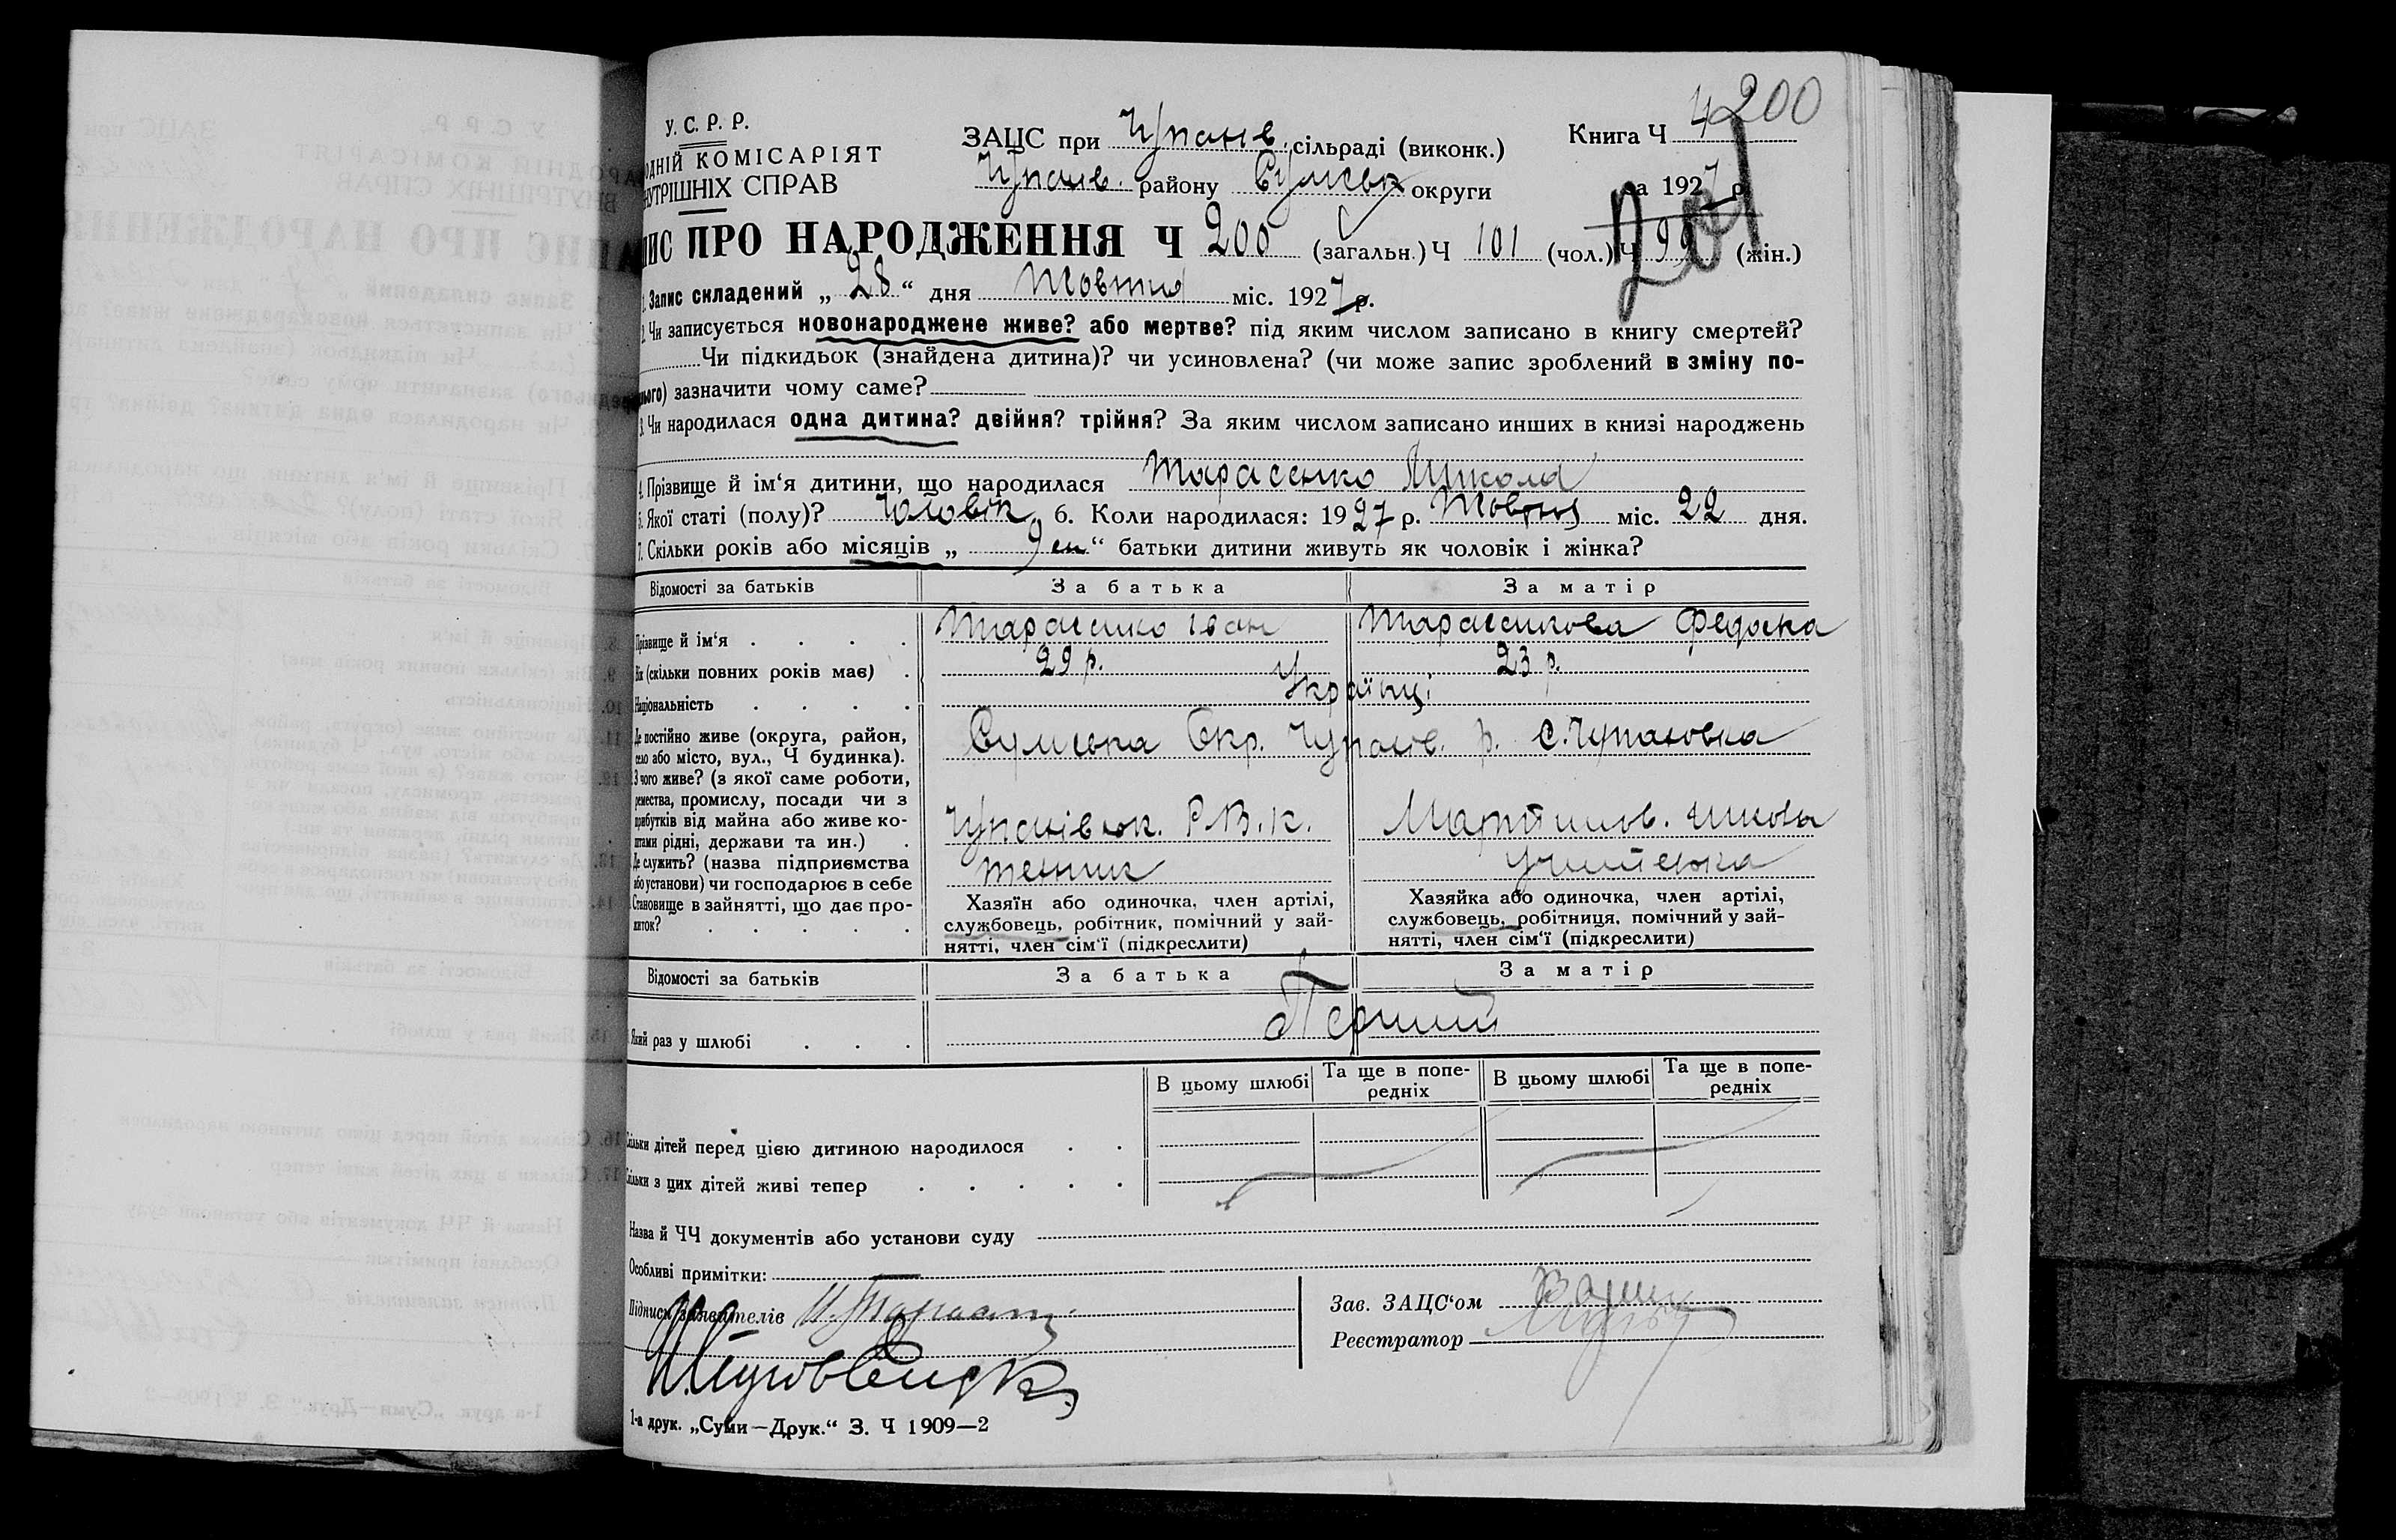 4 200
У. С. Р. Р.
ОДНІЙ КОМІСАРІЯТ
НУТРІШНІХ СПРАВ
ЗАЦС при Чупахів. сільраді (виконк.)
Чупахів. району Сумськ округи
Книга Ч
за 1927 р.
201
ПИС ПРО НАРОДЖЕННЯ Ч 200 (загальн.) Ч 101 (чол.) Ч 99 (жін.)
1. Запис складений „ 28 “ дня Жовтня міс. 1927 р.
2. Чи записується новонароджене живе? або мертве? під яким числом записано в книгу смертей?
Чи підкидьок (знайдена дитина)? чи усиновлена? (чи може запис зроблений в зміну по-
нього) зазначити чому саме?
3. Чи народилася одна дитина? двійня? трійня? За яким числом записано инших в книзі народжень
4. Прізвище й ім‘я дитини, що народилася Тарасенко Микола
5. Якої статі (полу)? Чоловік 6. Коли народилася: 1927 р. Жовтня міс. 22 дня.
7. Скільки років або місяців „ 9 м “ батьки дитини живуть як чоловік і жінка?
Відомості за батьків За батька За матір
Прізвище й ім‘я Тарасенко Іван Тарасенкова Федоска
Вік (скільки повних років має) 29 р. 23 р.
Національність Українці
Де постійно живе (округа, район, село або місто, вул., Ч будинка). Сумська Окр. Чупахів. р. с. Чупахівка
З чого живе? (з якої саме роботи,
ремества, промислу, посади чи з
прибутків від майна або живе ко-
штами рідні, держави та ин.)
Чупахівськ. Р.В.К. школи
Де служить? (назва підприємства
або установи) чи господарює в себе
учителька
Становище в зайнятті, що дає про-
житок?
Хазяїн або одиночка, член артілі,
службовець, робітник, помічний у зай-
нятті, член сім‘ї (підкреслити)
Хазяйка або одиночка, член артілі,
службовець, робітниця, помічний у зай-
нятті, член сім‘ї (підкреслити)
Відомості за батьків За батька За матір
Який раз у шлюбі Перший
В цьому шлюбі Та ще в попе-
редніх В цьому шлюбі Та ще в попе-
редніх
Скільки дітей перед цією дитиною народилося
Скільки з цих дітей живі тепер
Назва й ЧЧ документів або установи суду
Особливі примітки:
Підписи заявителів
Зав. ЗАЦС‘ом
Реєстратор
1-а друк. „Суми—Друк.“ З. Ч 1909—2